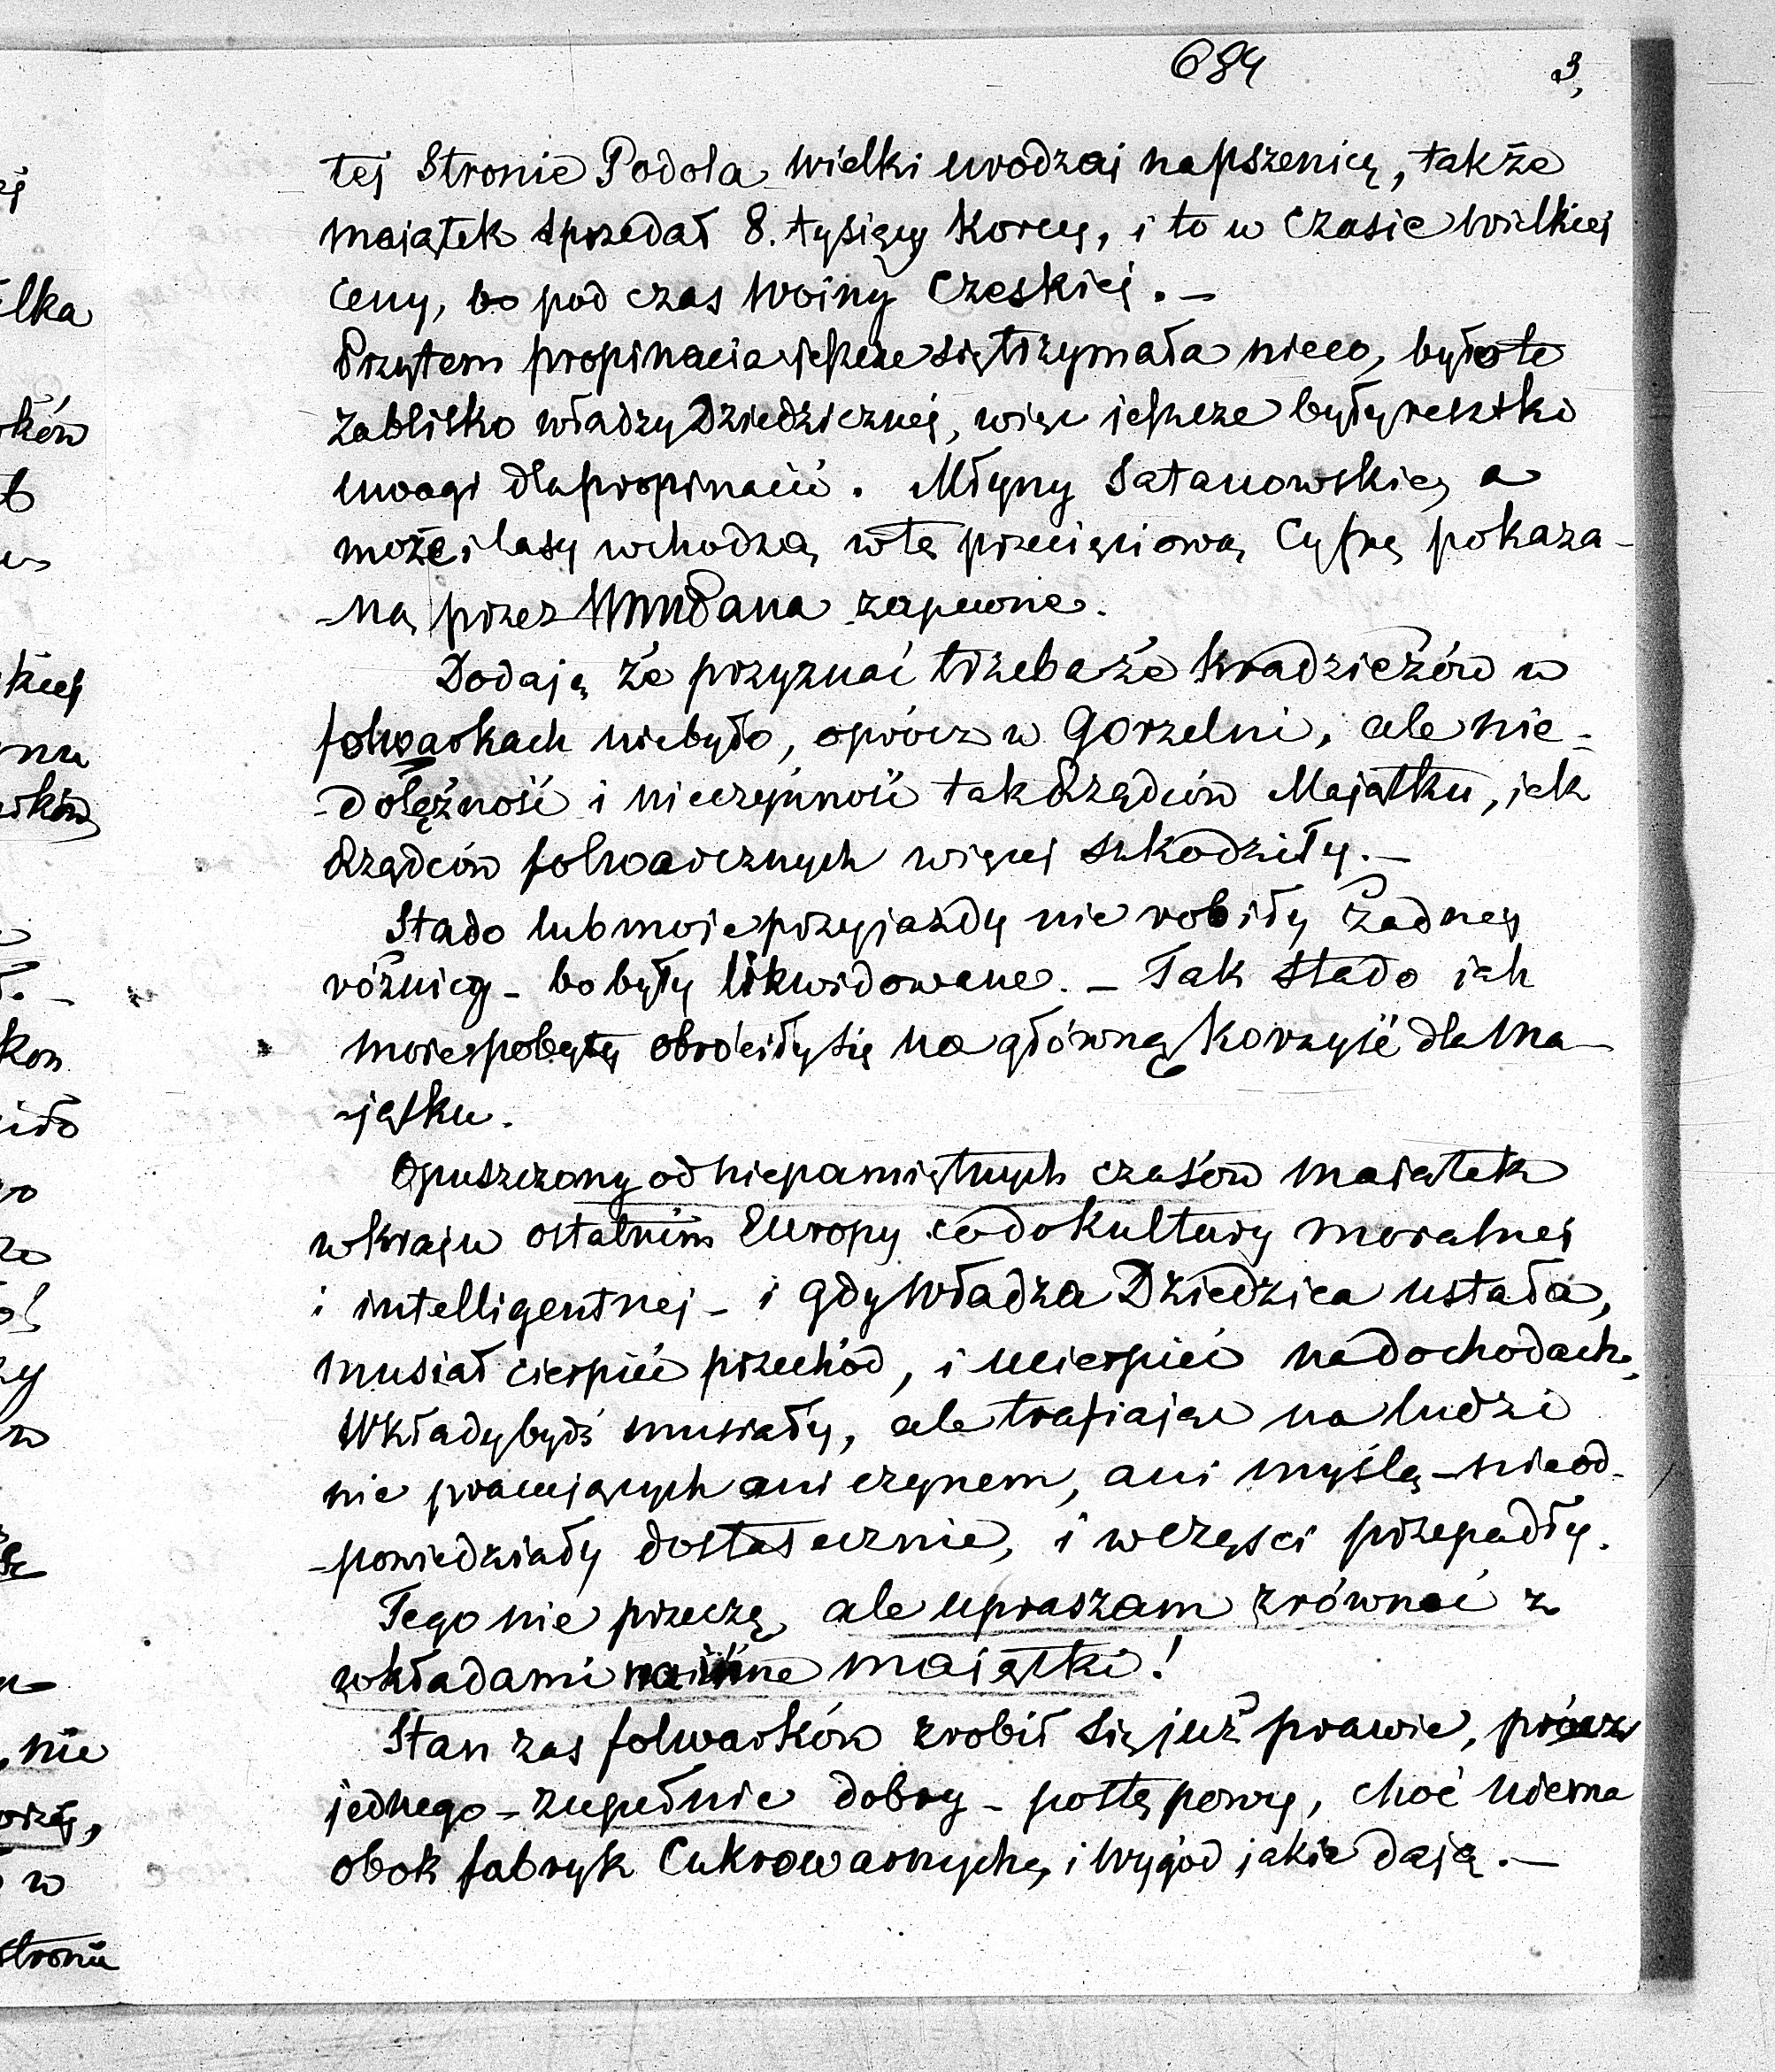 684 3,
tej Stronie Podola wielki urodzaj na pszenicę, także
majątek sprzedał 8. tysięcy Korcy, i to w czasie wielkiej
ceny, bo pod czas Woiny Czeskiej. –
Przytem propinacia jeszcze się trzymała nieco, było to
zablisko władzy Dziedzicznej, więc jeszcze były resztki
uwagi dla propinacii. Młyny Satanowskie, a
może i lasy wchodzą w tę przecięciową Cyfrę pokaza-
-ną przez zapewne.
Dodaję że przyznać trzeba że kradzieżów w
folwarkach niebyło, oprócz w Gorzelni, ale nie-
-dołężność i nieczynność tak Rządców Majątku, jak
Rządców folwarcznych więcej szkodziły. –
Stado lub moje przyjazdy nie robiły żadnej
różnicy – bo były likwidowane. – Tak stado jak
moie pobyty obróciły się na główną Korzyść dla Ma-
-jątku.
Opuszczony od niepamiętnych czasów maiątek
w kraju ostatnim Europy co do Kultury moralnej
i intelligentnej – i gdy Władza Dziedzica ustała,
musiał cierpieć przechód, i ucierpieć na dochodach,
Wkłady bydź musiały, ale trafiając na ludzi
nie pracujących ani czynem, ani myślą – nie od-
-powiedziały dostatecznie, i w części przepadły.
Tego nie przeczę, ale upraszam zrównać z
wkładami na inne maiątki!
Stan zas folwarków zrobił się już prawie, prócz
jednego – zupełnie dobry – postępowy, choć niema
obok fabryk Cukrowarnych, i wygód jakie dają. –
ków
kiej
kon
nie
w
stronie